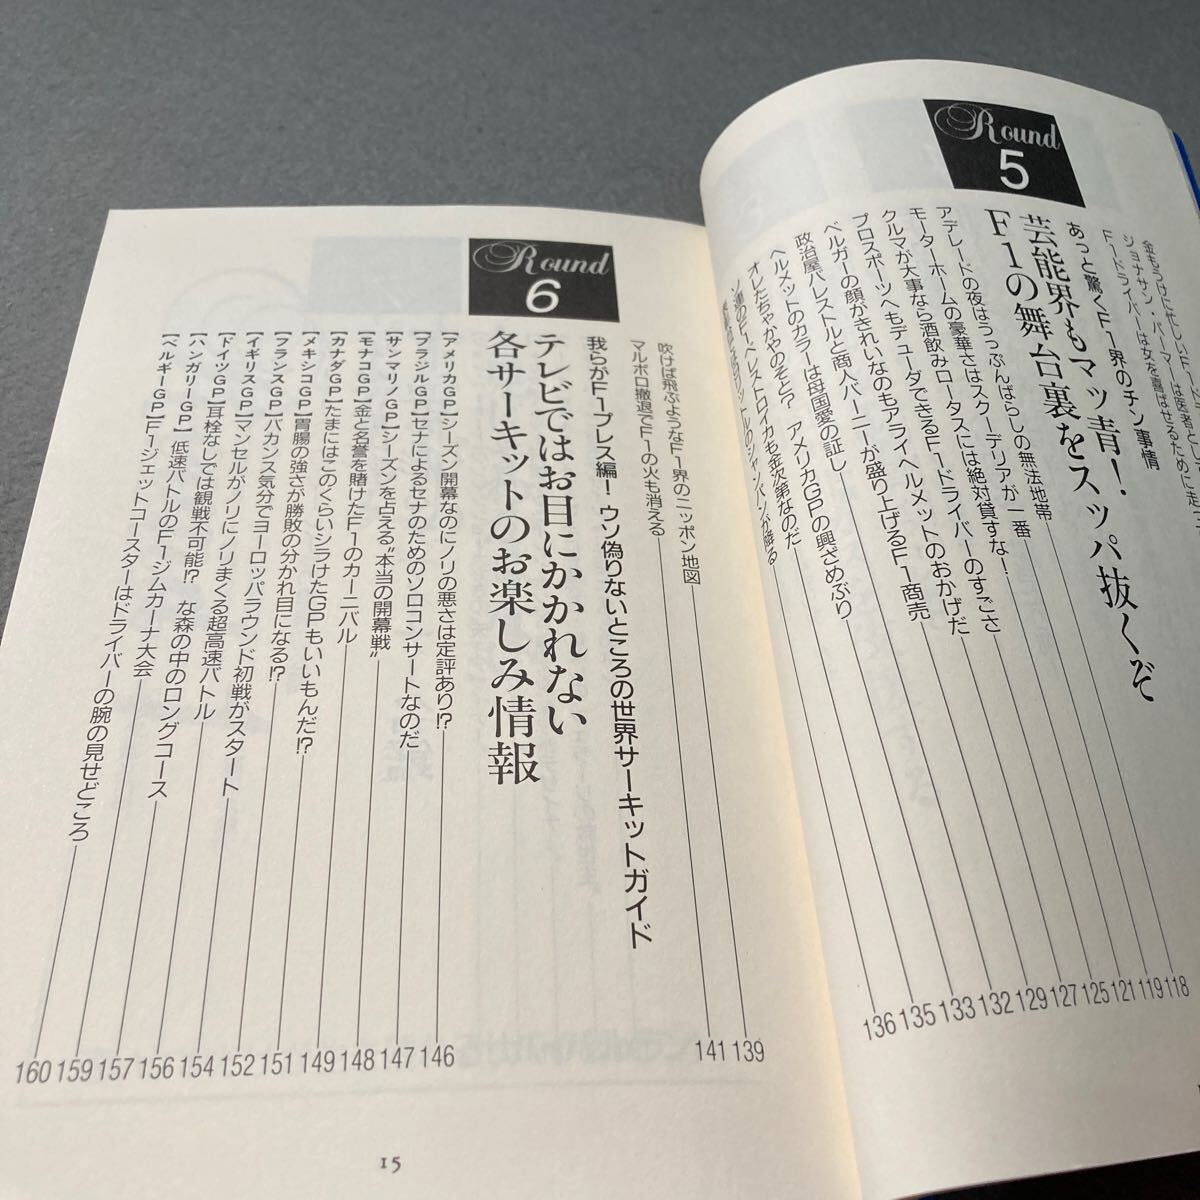 金もうけに忙しいF1ドライバーは医者として
ジョナサン・パーマーは医者として
F1ドライバーは女を喜ばせるために走っ
118
119
Round
5
あっと驚くF1界のチン事情
芸能界もマッ青!
F1の舞台裏をスッパ抜くぞ
アデレードの夜はうっぷんばらしの無法地帯
121
モーターホームの豪華さはスクーデリアが一番
125
クルマが大事なら酒飲みロータスには絶対貸すな!
127
プロスポーツへもデューダできるF1ドライバーのすごさ
129
ベルガーの顔がきれいなのもアライヘルメットのおかげだ
132
政治屋バレストルと商人バーニーが盛り上げるF1商売
133
ヘルメットのカラーは母国愛の証し
135
オレたちゃかやのそと? アメリカGPの興ざめぶり
136
ソ連のF1ペレストロイカも金次第なのだ
吹けば飛ぶようなF1界のニッポン地図
139
マルボロ撤退でF1の火も消える
141
Round
6
我らがF1プレス編! ウソ偽りないところの世界サーキットガイド
テレビではお目にかかれない
各サーキットのお楽しみ情報
【アメリカGP】シーズン開幕なのにノリの悪さは定評あり!?
146
【ブラジルGP】セナによるセナのためのソロコンサートなのだ
147
【サンマリノGP】シーズンを占える“本当の開幕戦”
148
【モナコGP】金と名誉を賭けたF1のカーニバル
149
【カナダGP】たまにはこのくらいシラけたGPもいいもんだ!?
151
【メキシコGP】胃腸の強さが勝敗の分かれ目になる!?
152
【フランスGP】バカンス気分でヨーロッパラウンド初戦がスタート
154
【イギリスGP】マンセルがノリにノリまくる超高速バトル
156
【ドイツGP】耳栓なしでは観戦不可能!? な森の中のロングコース
157
【ハンガリーGP】低速バトルのF1ジムカーナ大会
159
【ベルギーGP】F1ジェットコースターはドライバーの腕の見せどころ
160
15